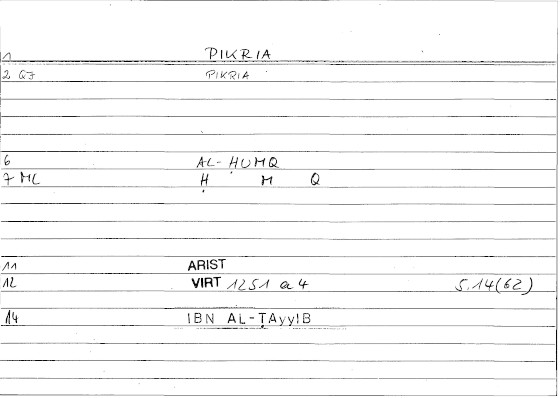 1 PIKRIA
2 QJ PIKRIA
6 AL-ḤUMQ
7 ML Ḥ M Q
11 ARIST
12 VIRT 1251 a 4 5.14(62)
14 IBN AL-ṬAyyIB